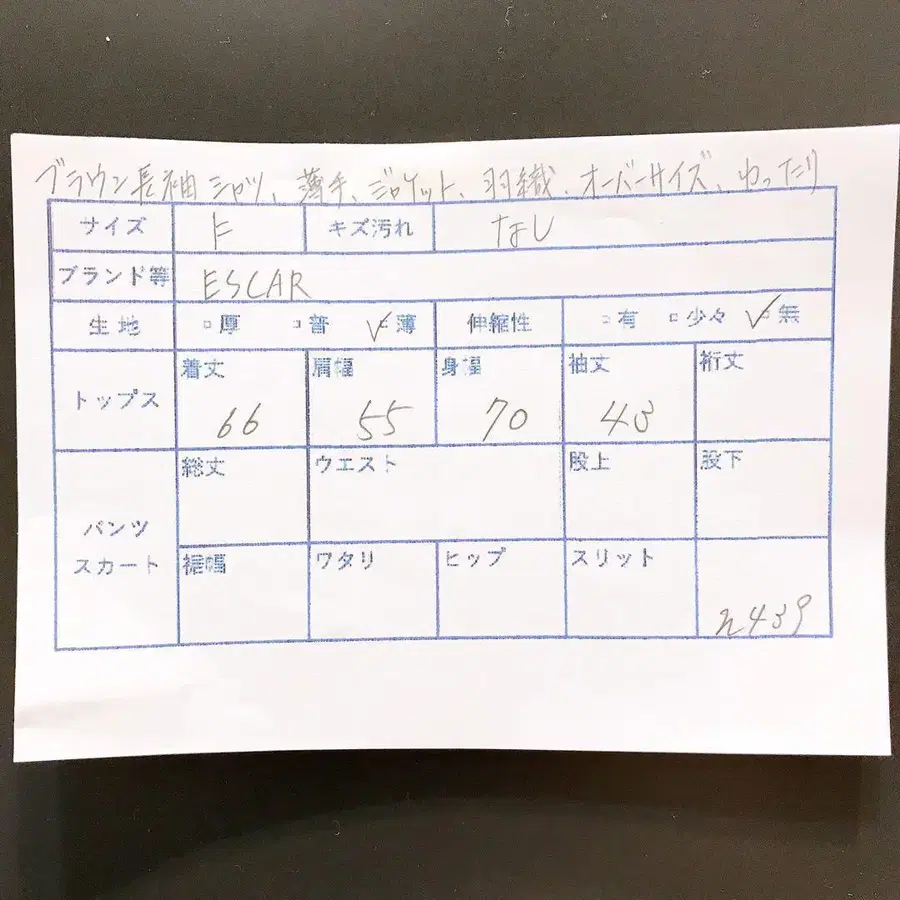 ブラウン長袖シャツ、薄手、ジャケット、羽織、オーバーサイズ、ゆったり
サイズ F キズ汚れ なし
ブランド等 ESCAR
生地 □厚 □普 ✓薄 伸縮性 □有 □少々 ✓無
トップス 着丈 肩幅 身幅 袖丈 裄丈
66 55 70 43
パンツ スカート
総丈 ウエスト 股上 股下
裾幅 ワタリ ヒップ スリット
n439